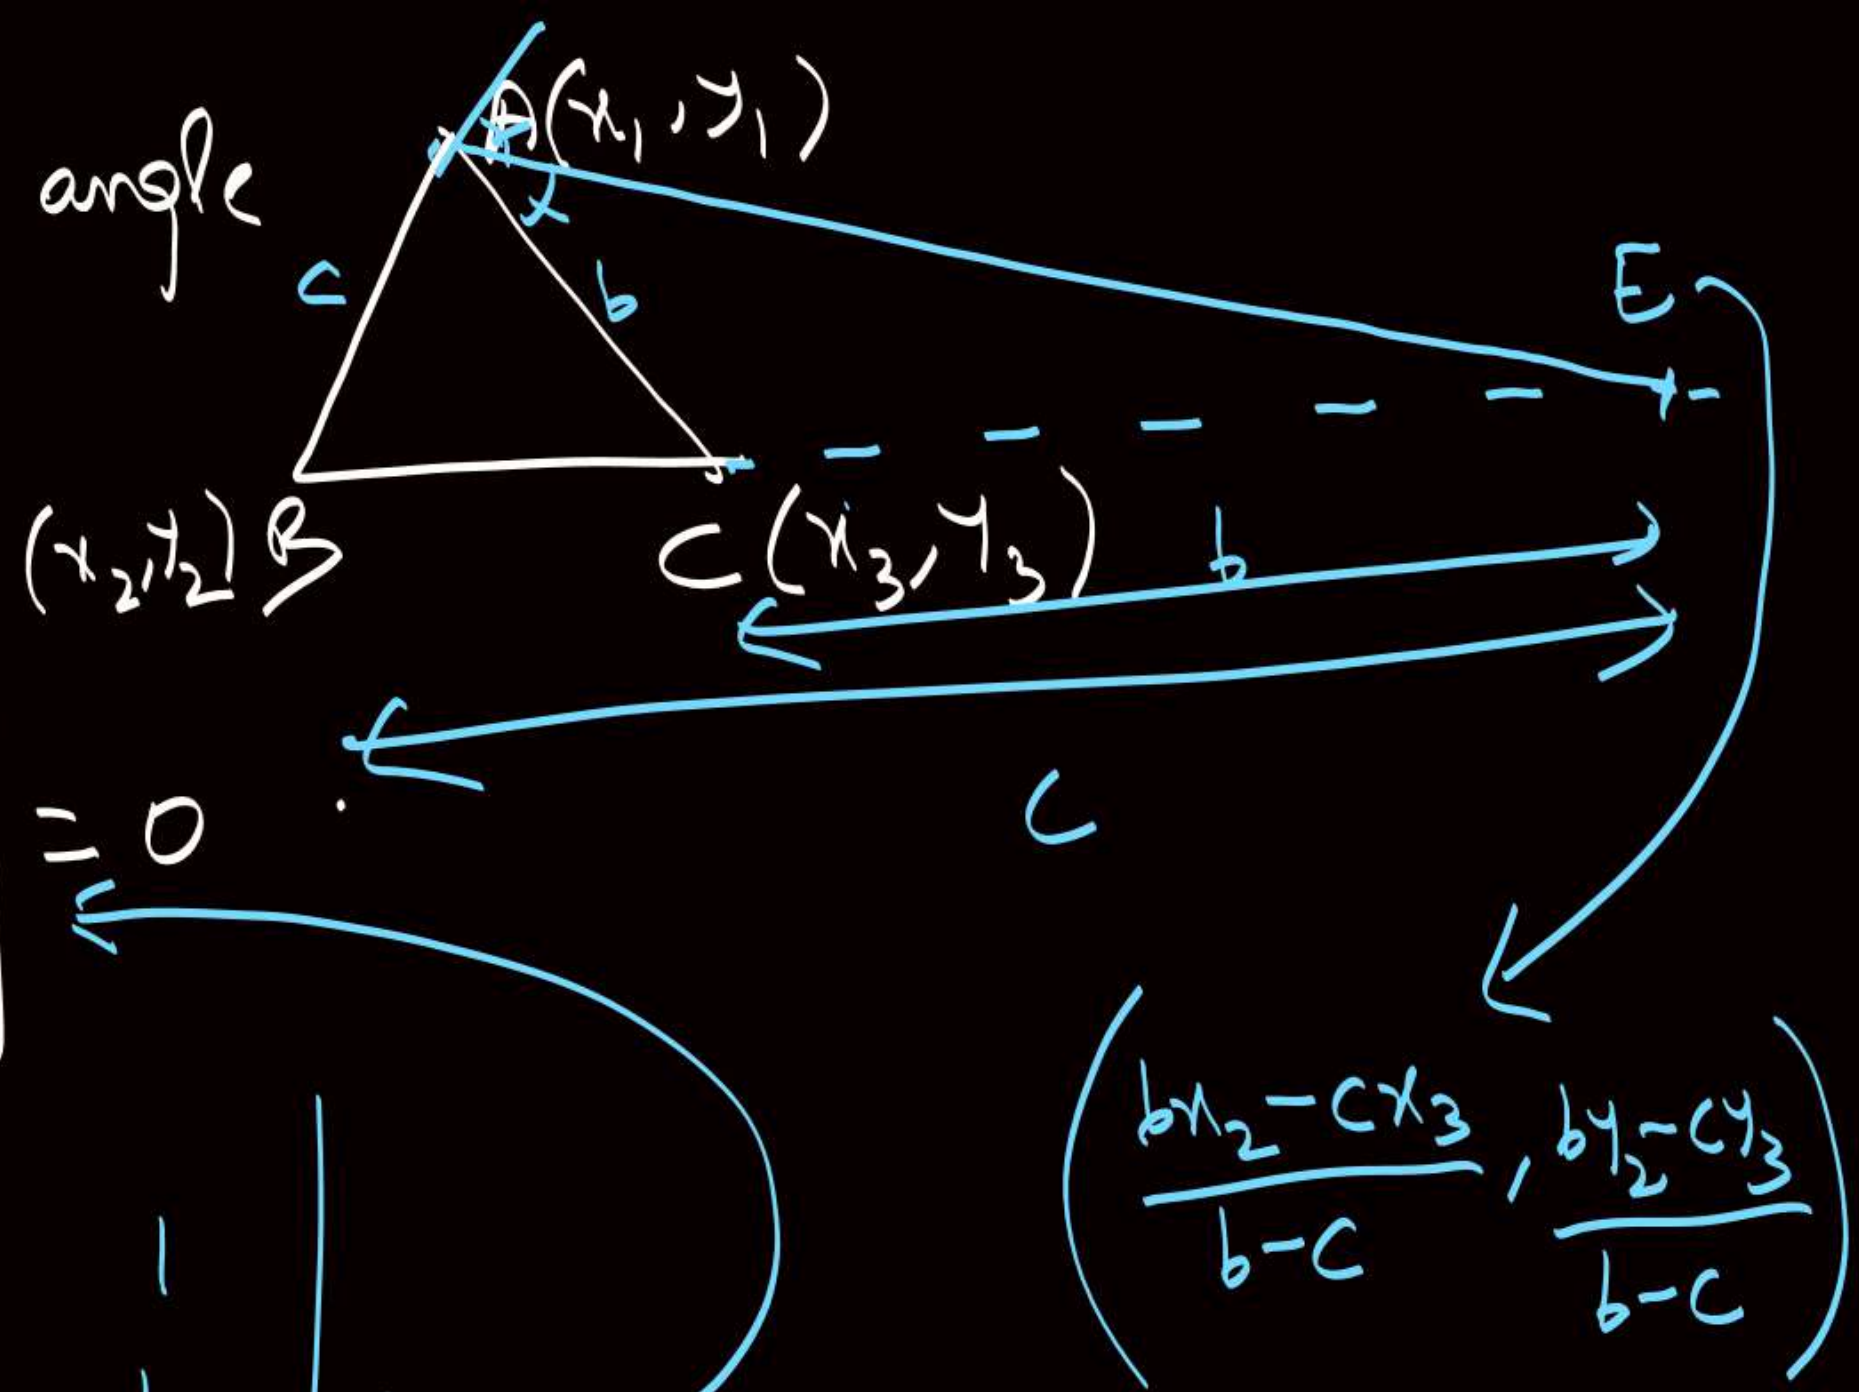 A(x₁, y₁)
angle
c
b
E
(x₂, y₂) B
C (x₃, y₃)
b
c
= 0
(bx₂ - cx₃ / b - c, by₂ - cy₃ / b - c)
1